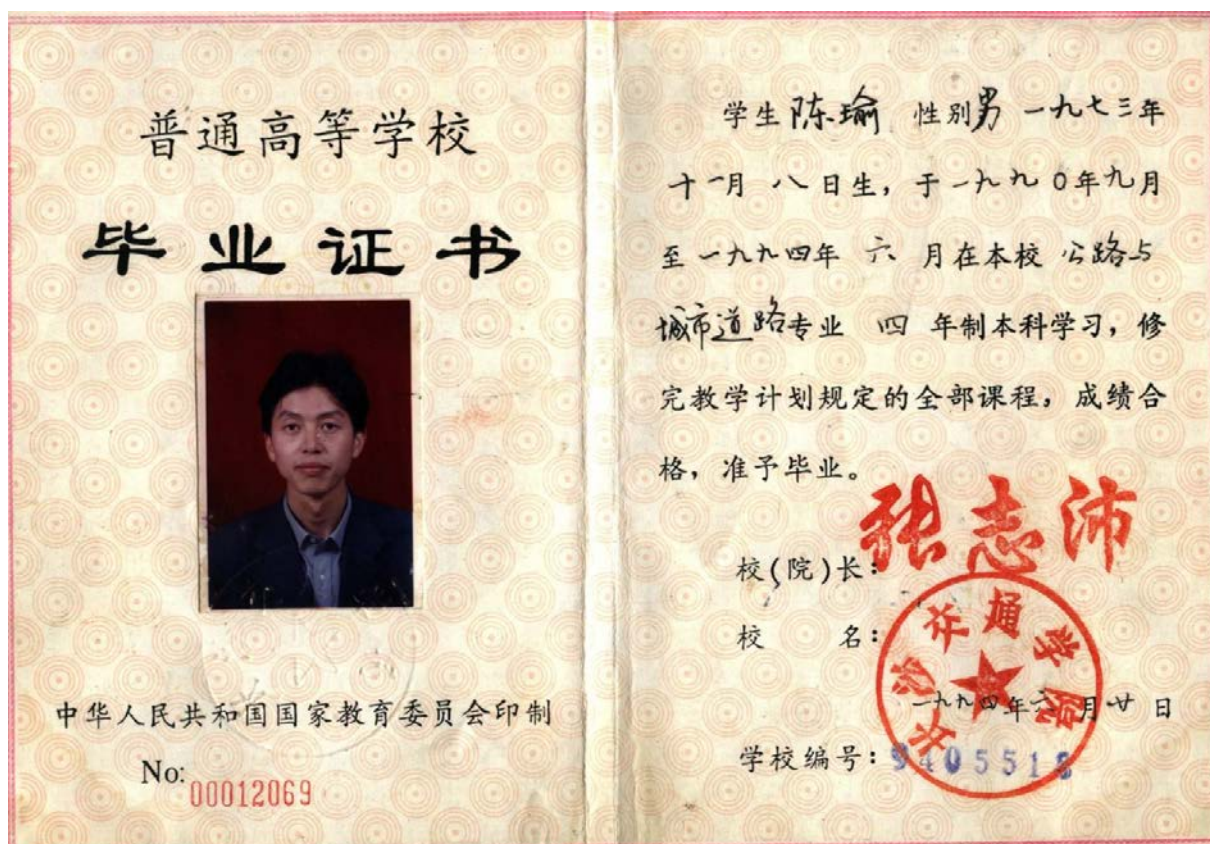 普通高等学校
毕业证书
中华人民共和国国家教育委员会印制
No: 00012069
学生 陈瑜 性别男 一九七三年
十一月 八 日生，于一九九0年九月
至一九九四年 六 月在本校 公路与
城市道路专业 四 年制本科学习，修
完教学计划规定的全部课程，成绩合
格，准予毕业。
校(院)长：张志沛
校 名：
长沙交通学院
一九九四年六月廿日
学校编号：